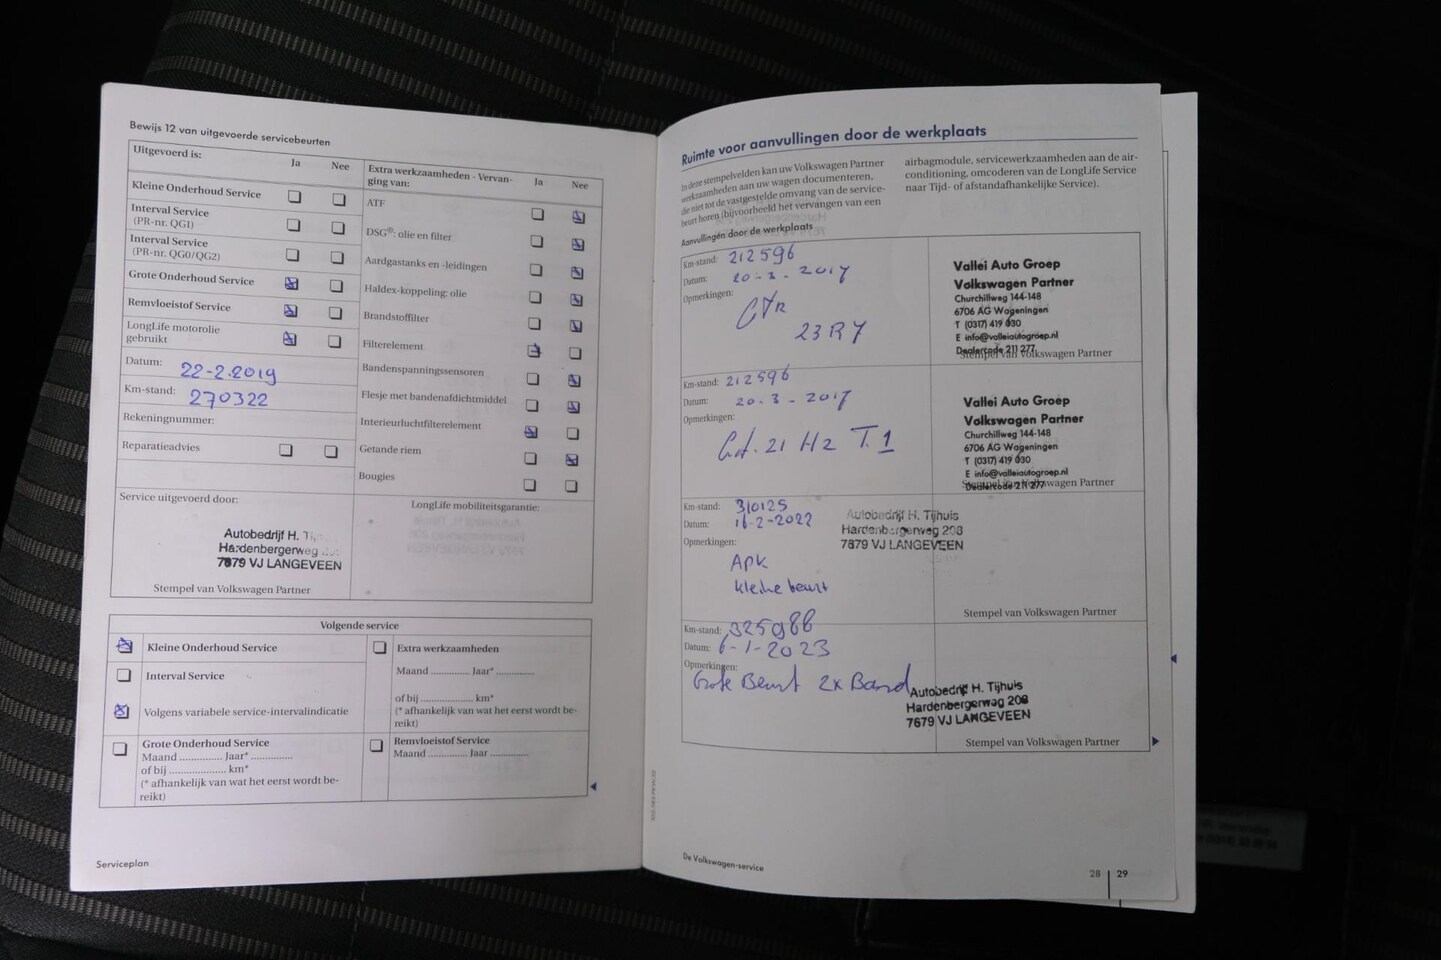 Bewijs 12 van uitgevoerde servicebeurten
Uitgevoerd is: Ja Nee
Kleine Onderhoud Service
Interval Service
(PR-nr. QG1)
Interval Service
(PR-nr. QG0/QG2)
Grote Onderhoud Service
Remvloeistof Service
LongLife motorolie
gebruikt
Datum: 22-2-2019
Km-stand: 270322
Rekeningnummer:
Reparatieadvies
Extra werkzaamheden - Vervan-
ging van: Ja Nee
ATF
DSG®: olie en filter
Aardgastanks en -leidingen
Haldex-koppeling: olie
Brandstoffilter
Filterelement
Bandenspanningssensoren
Flesje met bandenafdichtmiddel
Interieurluchtfilterelement
Getande riem
Bougies
Service uitgevoerd door:
Autobedrijf H.
Hardenbergerweg
7679 VJ LANGEVEEN
Stempel van Volkswagen Partner
LongLife mobiliteitsgarantie:
Volgende service
Kleine Onderhoud Service
Interval Service
Volgens variabele service-intervalindicatie
Grote Onderhoud Service
Maand ............... Jaar* ...............
of bij .................... km*
(* afhankelijk van wat het eerst wordt be-
reikt)
Extra werkzaamheden
Maand .............. Jaar* ..............
of bij .................... km*
(* afhankelijk van wat het eerst wordt be-
reikt)
Remvloeistof Service
Maand .............. Jaar ..............
Serviceplan
Ruimte voor aanvullingen door de werkplaats
In deze stempelvelden kan uw Volkswagen Partner
werkzaamheden aan uw wagen documenteren,
die niet tot de vastgestelde omvang van de service-
beurt horen (bijvoorbeeld het vervangen van een
airbagmodule, servicewerkzaamheden aan de air-
conditioning, omcoderen van de LongLife Service
naar Tijd- of afstandafhankelijke Service).
Aanvullingen door de werkplaats
Km-stand: 212596
Datum: 20-3-2017
Opmerkingen:
23R7
Vallei Auto Groep
Volkswagen Partner
Churchillweg 144-148
6706 AG Wageningen
T (0317) 419 030
E info@valleiautogroep.nl
Dealercode 211 277
Stempel van Volkswagen Partner
Km-stand: 212596
Datum: 20-3-2017
Opmerkingen:
21 H2 T.1
Vallei Auto Groep
Volkswagen Partner
Churchillweg 144-148
6706 AG Wageningen
T (0317) 419 030
E info@valleiautogroep.nl
Dealercode 211 277
Stempel van Volkswagen Partner
Km-stand: 310125
Datum: 16-2-2022
Opmerkingen:
APK
kleine beurt
Autobedrijf H. Tijhuis
Hardenbergerweg 208
7679 VJ LANGEVEEN
Stempel van Volkswagen Partner
Km-stand: 325988
Datum: 6-1-2023
Opmerkingen:
Grote Beurt 2x Band
Autobedrijf H. Tijhuis
Hardenbergerweg 208
7679 VJ LANGEVEEN
Stempel van Volkswagen Partner
De Volkswagen-service
28 29